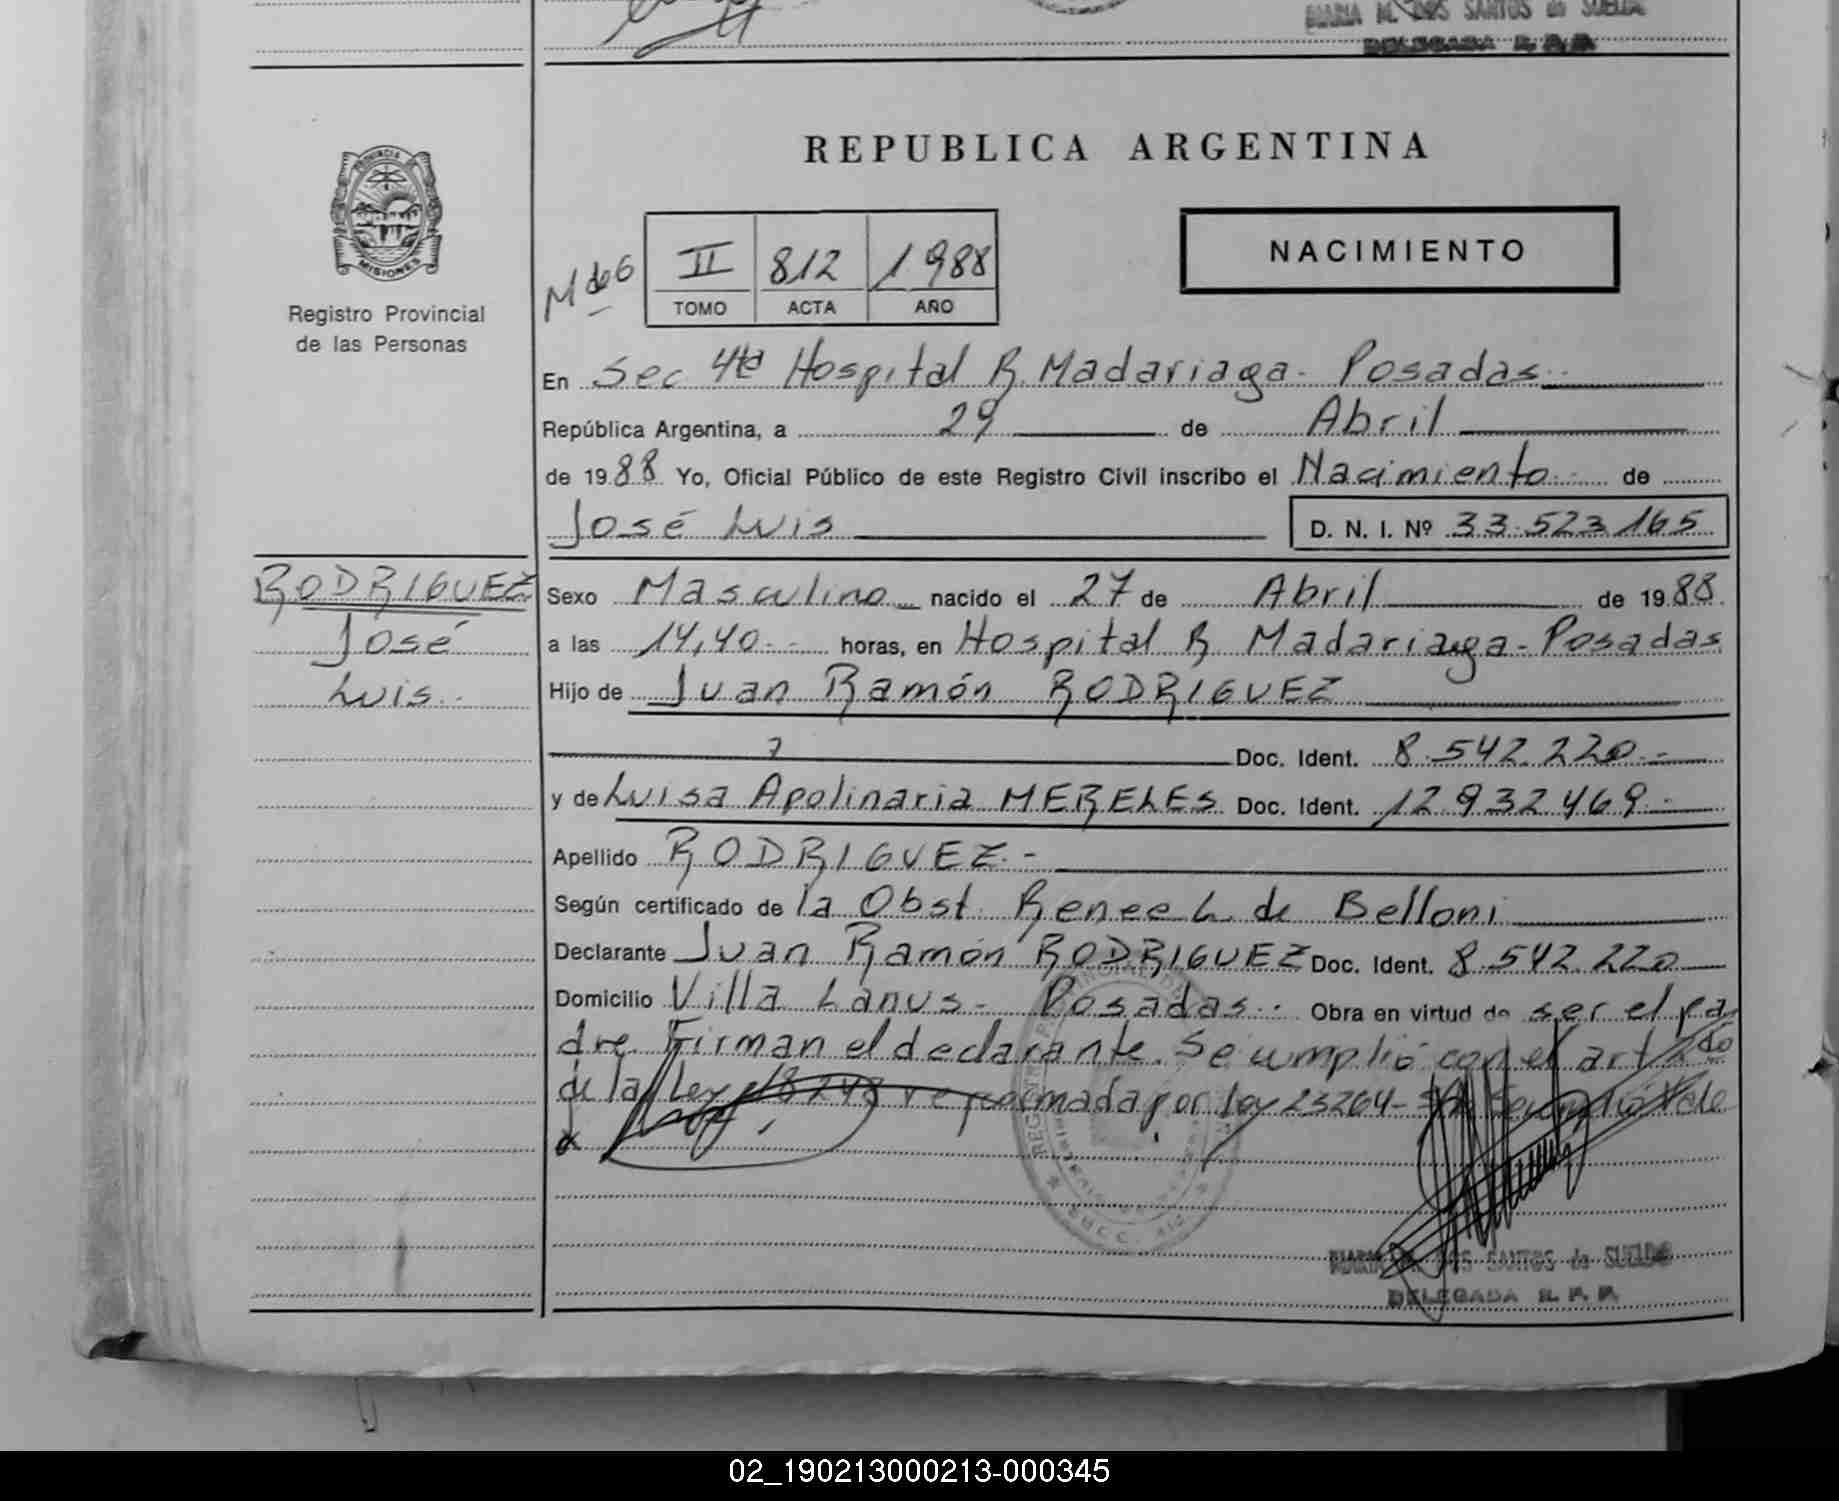 MARIA M. DOS SANTOS de SUELDO
DELEGADA R. P. P.
REPUBLICA ARGENTINA
PROVINCIA DE
MISIONES
Registro Provincial
de las Personas
M de G
II 812 1988
TOMO ACTA AÑO
NACIMIENTO
En Sec 4ta Hospital R. Madariaga - Posadas
República Argentina, a 29 de Abril
de 1988 Yo, Oficial Público de este Registro Civil inscribo el Nacimiento de
José Luis D. N. I. Nº 33.523.165
RODRIGUEZ
José
Luis.
Sexo Masculino nacido el 27 de Abril de 1988.
a las 14,40 horas, en Hospital R Madariaga - Posadas
Hijo de Juan Ramón RODRIGUEZ
Doc. Ident. 8.542.220.-
y de Luisa Apolinaria MERELES Doc. Ident. 12.932.469.-
Apellido RODRIGUEZ.-
Según certificado de la Obst. Renee L. de Belloni
Declarante Juan Ramón RODRIGUEZ Doc. Ident. 8.542.220
Domicilio Villa Lanus - Posadas.- Obra en virtud de ser el pa
dre. Firman el declarante. Se cumplió con el art 2do
de la Ley 18248 reformada por ley 23264- Se cumplió Vale
MARIA M. DOS SANTOS de SUELDO
DELEGADA R. P. P.
02_190213000213-000345